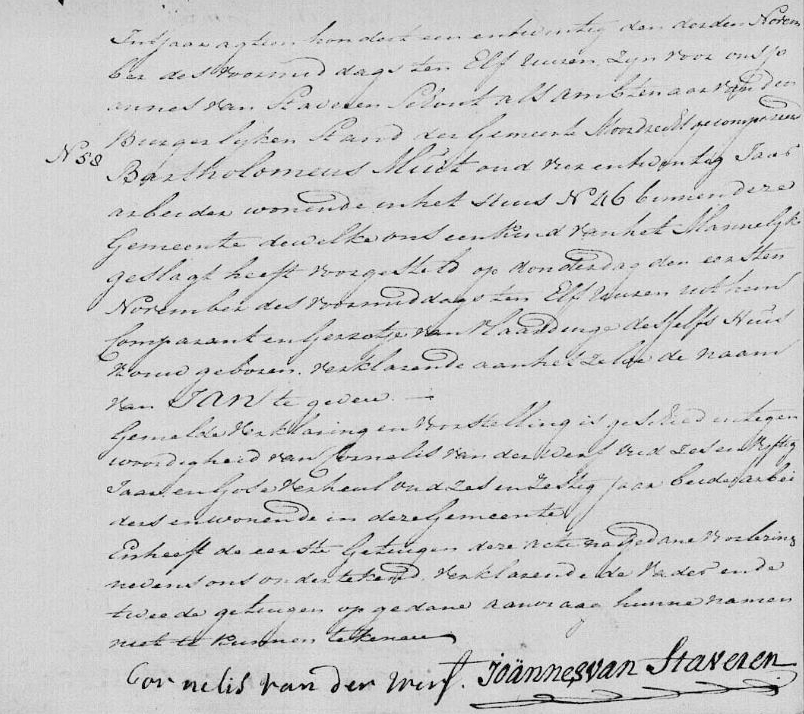 Int jaar agtien hondert een en twintig den derden Novem
ber des voormiddags ten Elf uuren, zyn voor ons Jo
annes van Staveren Schout als ambtenaar van den
Burgerlyken Stand der Gemeente Moordrecht gecompareerd
N 58
Bartholomeus Muit oud vier en twintig Jaar
arbeider wonende in het Huis N 46 binnen deze
Gemeente dewelke ons een kind van het Mannelyk
geslagt heeft voorgesteld op donderdag den eersten
November des voormiddags ten Elf uuren uit hem
Comparant en Gerrotje van Vlaardinge deszelfs Huis
vrouw geboren. verklarende aan het zelve de naam
van JAN te geven. —
Gemelde verklaring en voorstelling is geschied in tegen
woordigheid van Cornelis van der Werf oud zes en vyftig
Jaar en Gose Verheul oud zes en zestig jaar beide arbei
ders en wonende in deze Gemeente
En heeft de eerste Getuigen deze acte na gedane voorlezing
nevens ons ondertekend. verklarende de vader en de
tweede getuigen op gedane aanvraag hunne namen
niet te kunnen tekenen
Cornelis van der werf. Joännes van Staveren